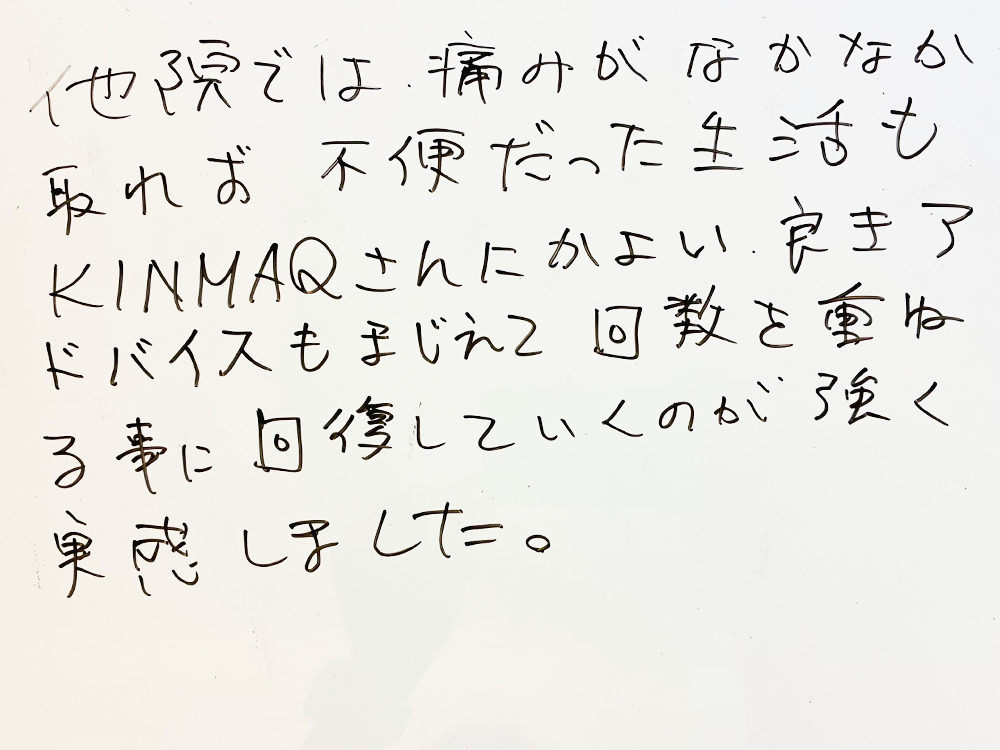 他院では、痛みがなかなか
取れず 不便だった生活も
KINMAQさんにかよい、良きア
ドバイスもまじえて 回数を重ね
る事に 回復していくのが強く
実感しました。